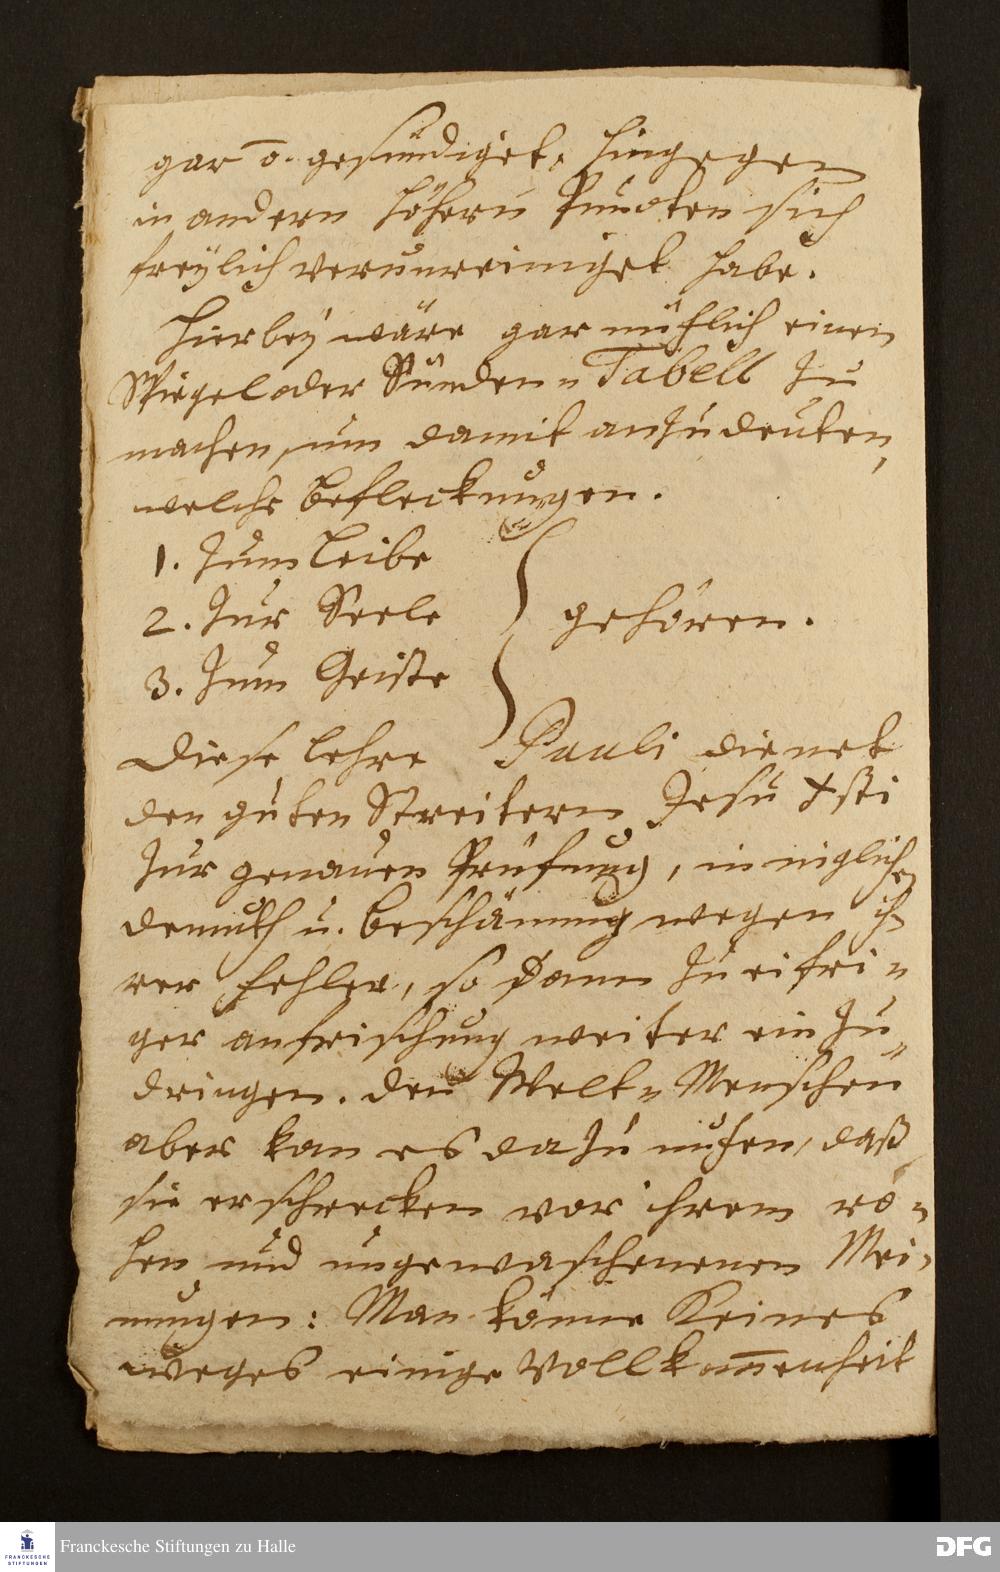 gar õ. gesündiget, hingegen
in andern höhern Puncten sich
freÿlich verunreiniget habe.
Hierbeÿ wäre gar nützlich einen
Spiegel oder Sünden-Tabell zu
machen, um damit anzudeuten,
welche Befleckungen.
1. Zum Leibe
2. Zur Seele
gehören.
3. Zum Geiste
Diese Lehre Pauli dienet
den guten Streitern Jesu Xsti
zur genauen Prüfung, inniglicher
demuth u. beschämung wegen ih-
rer Fehler, so dann zu eifri-
ger anfrischung weiter ein zu-
dringen. den Welt-Menschen
aber kan es dazu nutzen, daß
sie erschrecken vor ihrem ro-
hen und ungewaschenenen Mei-
nungen: Man könne Keines
weges einige Vollkom̅enheit
Franckesche Stiftungen zu Halle
FRANCKESCHE
STIFTUNGEN
DFG